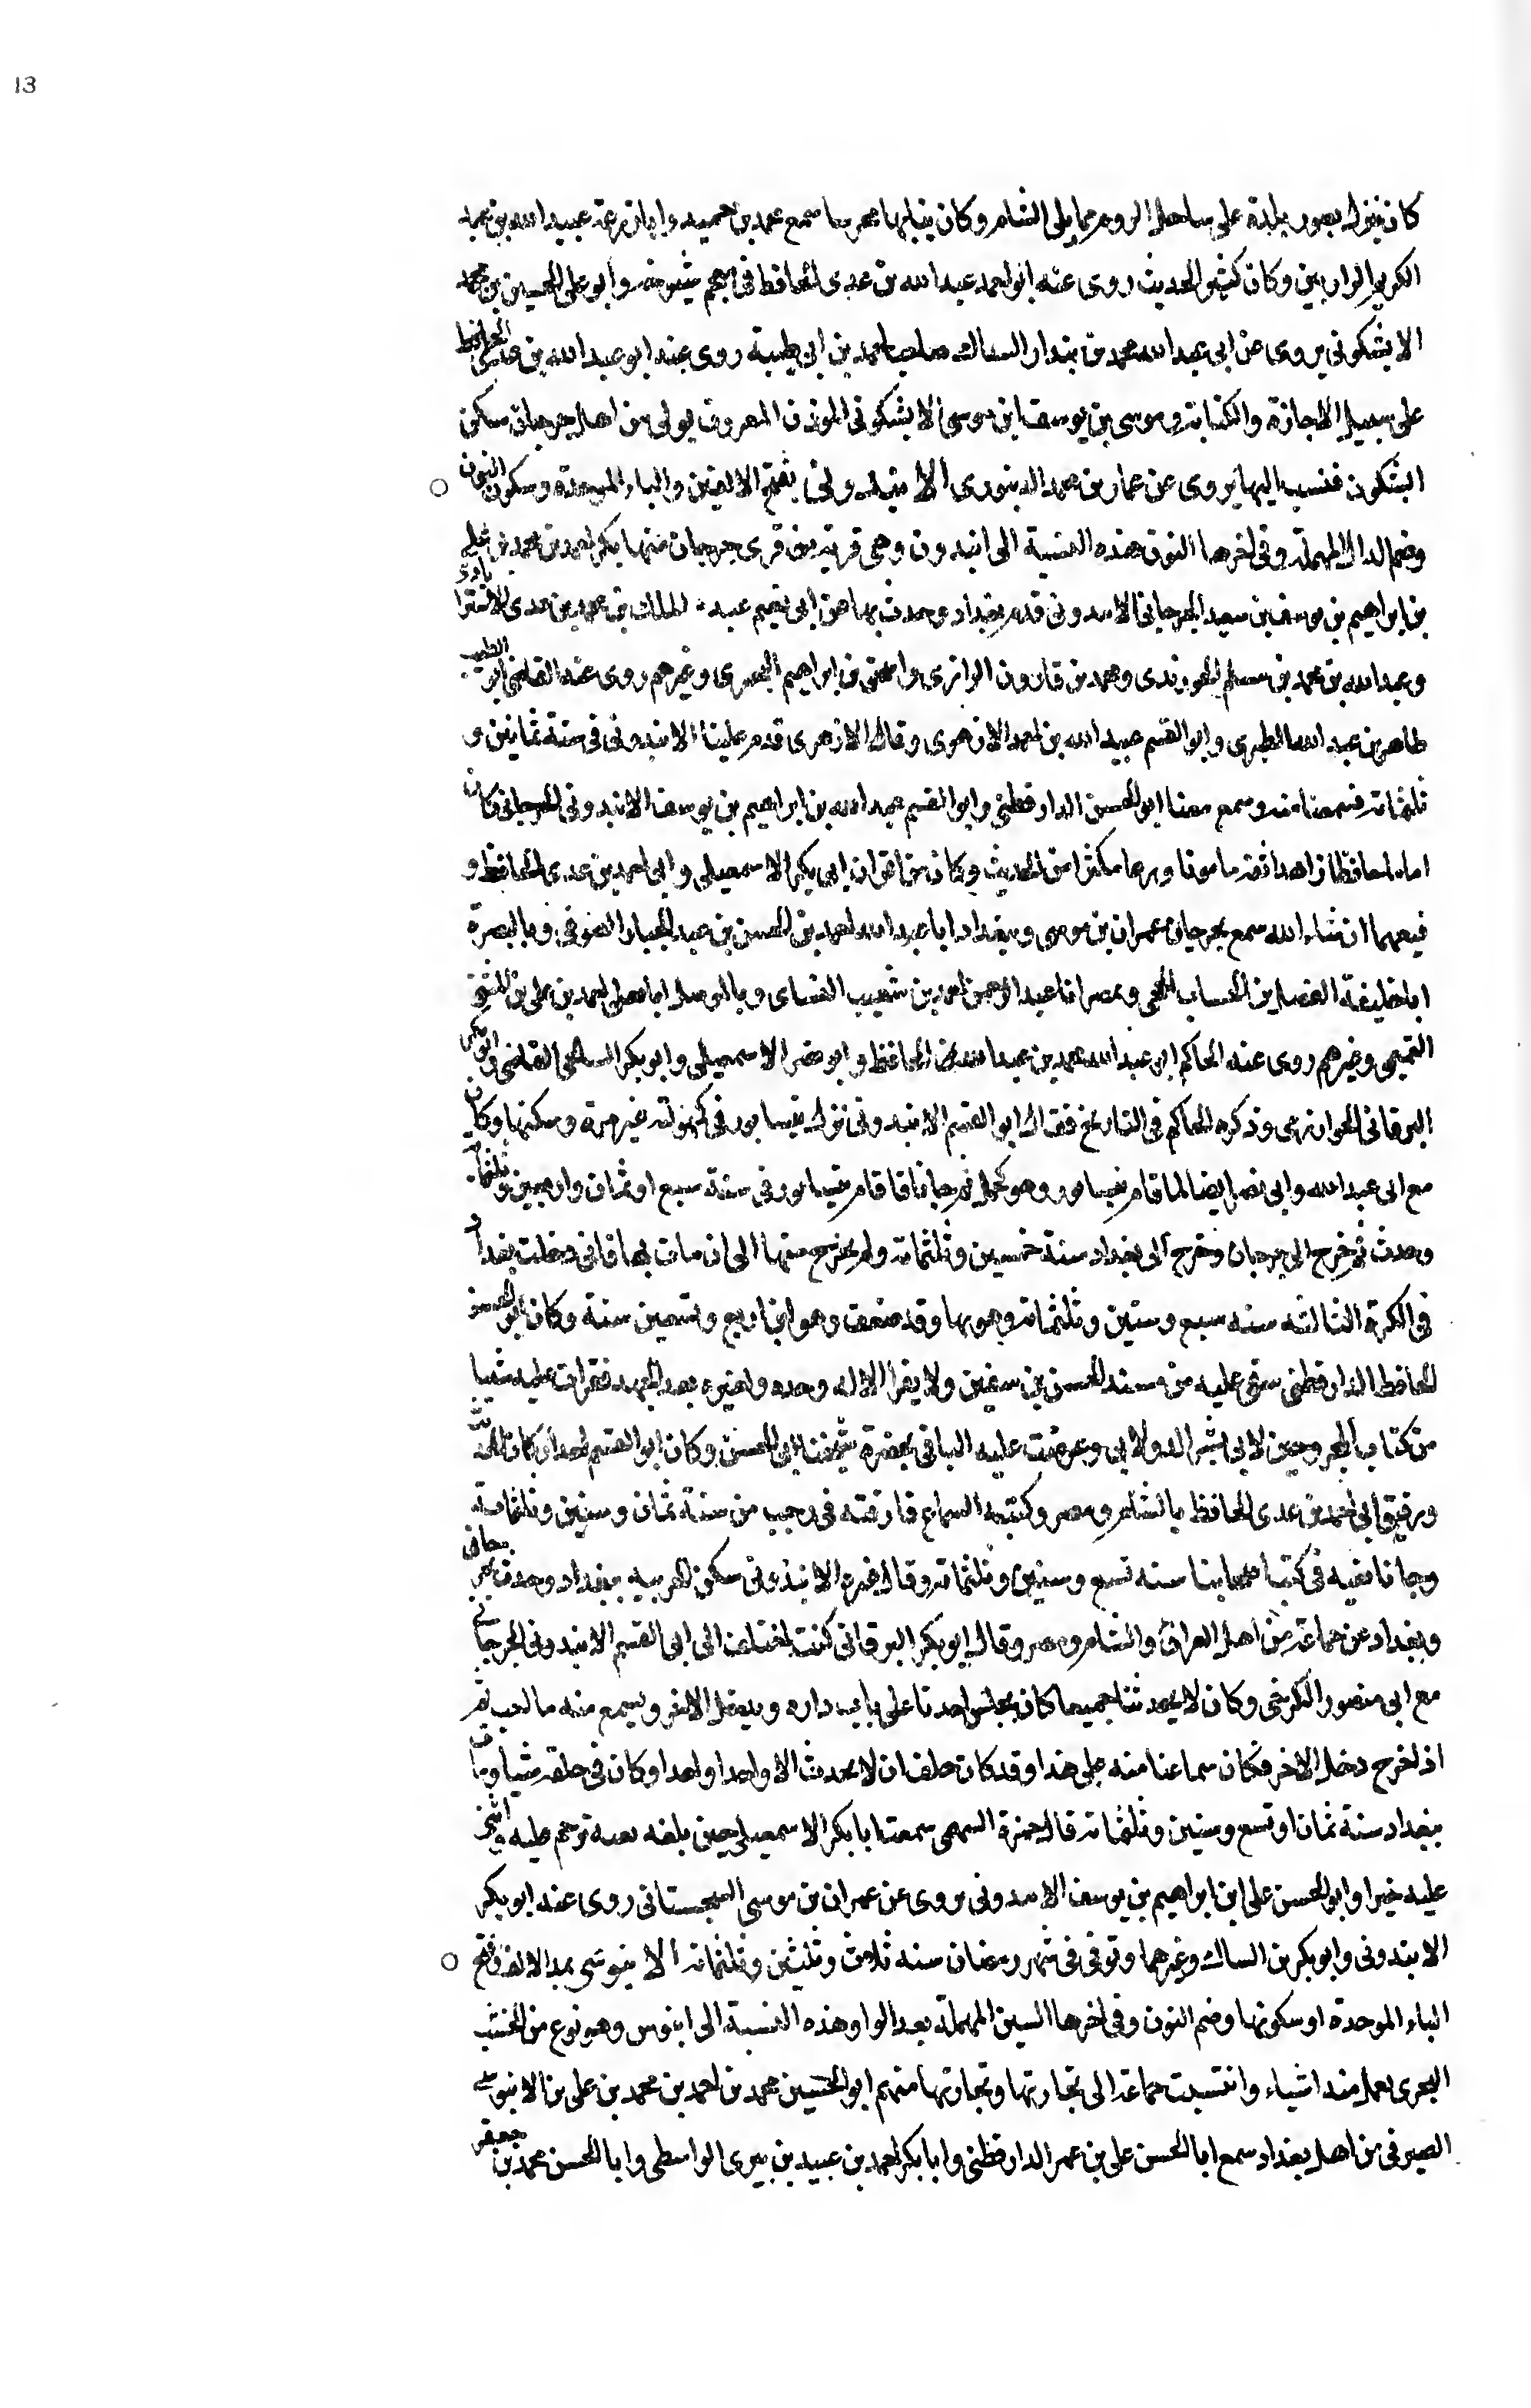 13
كان ينزل بصور بلدة على ساحل الروم مما يلى الشام وكان يتابها محرسا سمع محمد بن حميد وابازرعة عبيد الله بن عبد
الكريم الرازيين وكان كثير الحديث روى عنه ابو احمد عبد الله بن عدى الحافظ فى معجم شيوخه وابو على الحسين بن محمد
الابشكونى يروى عن ابى عبد الله محمد بن بندار السماك صاحب احمد بن ابى طيبة روى عنه ابو عبد الله بن عدى الحافظ
على سبيل الاجازة والكتابة وموسى بن يوسف ابن موسى الابشكونى المؤذن المعروف بولى من اهل جرجان سكن
ابشكون فنسب اليها يروى عن عمار بن محمد الدينورى الابندونى بفتح الالفين والباء الموحدة وسكون النون
وضم الدال المهملة وفى اخرها النون هذه النسبة الى ابندون وهى قرية من قرى جرجان منها بكر احمد بن محمد بن على
بن ابراهيم بن يوسف بن سعيد الجرجانى الابندونى قدم بغداد وحدث بها عن ابى نعيم عبد الملك بن محمد بن عدى الاستراباذى
وعبد الله بن محمد بن مسلم الجوربذى ومحمد بن قارون الرازى واسحق بن ابراهيم البصرى وغيرهم روى عنه القاضى ابو الطيب
طاهر بن عبد الله الطبرى وابو القسم عبيد الله بن احمد الازهرى وقال الازهرى قدم علينا الابندونى فى سنة ثمانين و
ثلثمائة فسمعنا منه وسمع معنا ابو الحسن الدارقطنى وابو القسم عبد الله بن ابراهيم بن يوسف الابندونى الجرجانى كان
اماما حافظا زاهدا ثقة مامونا ورعا مكثرا من الحديث وكان من اقران ابى بكر الاسمعيلى وابى احمد بن عدى الحافظ و
فيعهما ان شاء الله سمع بجرجان عمران بن موسى وببغداد ابا عبد الله احمد بن الحسن بن عبد الجبار الصوفى وبالبصرة
ابا خليفة الفضل بن الحباب الجمحى وبمصر ابا عبد الرحمن احمد بن شعيب النسائى وبالموصل ابا يعلى احمد بن على بن المثنى
التميمى وغيرهم روى عنه الحاكم ابو عبد الله محمد بن عبد الله الحافظ وابو نصر الاسمعيلى وابو بكر السالحى القاضى وابو بكر
البرقانى الخوارزمى وذكره الحاكم فى التاريخ فقال ابو القسم الابندونى نزل نيسابور فى كهولته غير مرة وسكنها وكان
مع ابى عبد الله وابى نصر ايضا لما اقام نيسابور وهو كهل ثم جانا فاقام بنيسابور فى سنة سبع او ثمان واربعين وثلثمائة
وحدث ثم خرج الى جرجان وخرج الى بغداد سنة خمسين وثلثمائة ولم يخرج منها الى ان مات بها فانى دخلت بغداد
فى الكرة الثالثة سنه سبع وستين وثلثمائة وهو بها وقد ضعف وهو ابن اربع وتسعين سنة وكان ابو الحسن
الحافظ الدارقطنى سبق عليه من مسند الحسن بن سفين ولا يقرأ الا له وحده ولغيره بعد الجهد فقرات عليه شيبا
من كتاب المجروحين لابى بشر الدولابى وعرضت عليه الباقى بحضرة شيخنا ابى الحسن وكان ابو القسم احد اركان الحديث
ورفيق ابى احمد بن عدى الحافظ بالشام ومصر وكتبه السماع فارقته فى رجب من سنة ثمان وستين وثلثمائة
وجانا نعيه فى كتب اصحابنا سنه تسع وستين وثلثمائة وقال غيره الابندونى سكن الحربيه ببغداد وحدث بجرجان
وبغداد عن جماعة من اهل العراق والشام ومصر وقال ابو بكر البرقانى كنت اختلف الى ابى القسم الابندونى الجرجانى
مع ابى منصور الكرخى وكان لا يحدثنا جميعا كان يجلس احدنا على باب داره ويدخل الاخر ويسمع منه ما احب ثم
اذا خرج دخل الاخر فكان سماعنا منه على هذا وقد كان حلف ان لا يحدث الا واحدا واحدا وكان فى خلقه شيا ومات
ببغداد سنة ثمان او تسع وستين وثلثمائة قال حمزة السهمى سمعت ابا بكر الاسمعيلى حين بلغه نعيه ترحم عليه واثنى
عليه خيرا وابو الحسن على ابن ابراهيم بن يوسف الابندونى يروى عن عمران بن موسى السجستانى روى عنه ابو بكر
الابندونى وابو بكر بن السباك وغيرهما وتوفى فى شهر رمضان سنه ثلاث وثلثين وثلثمائة الابنوسى بمد الالف وفتح
الباء الموحدة او سكونها وضم النون وفى اخرها السين المهملة بعد الواو هذه النسبة الى ابنوس وهو نوع من الخشب
البحرى يعمل منه اشياء وانتسبت جماعة الى تجارتها ونجارتها منهم ابو الحسين محمد بن احمد بن محمد بن على بن الابنوسى
الصيرفى من اهل بغداد سمع ابا الحسن على بن عمر الدارقطنى وابا بكر احمد بن عبيد بن بيرى الواسطى وابا الحسن محمد بن جعفر